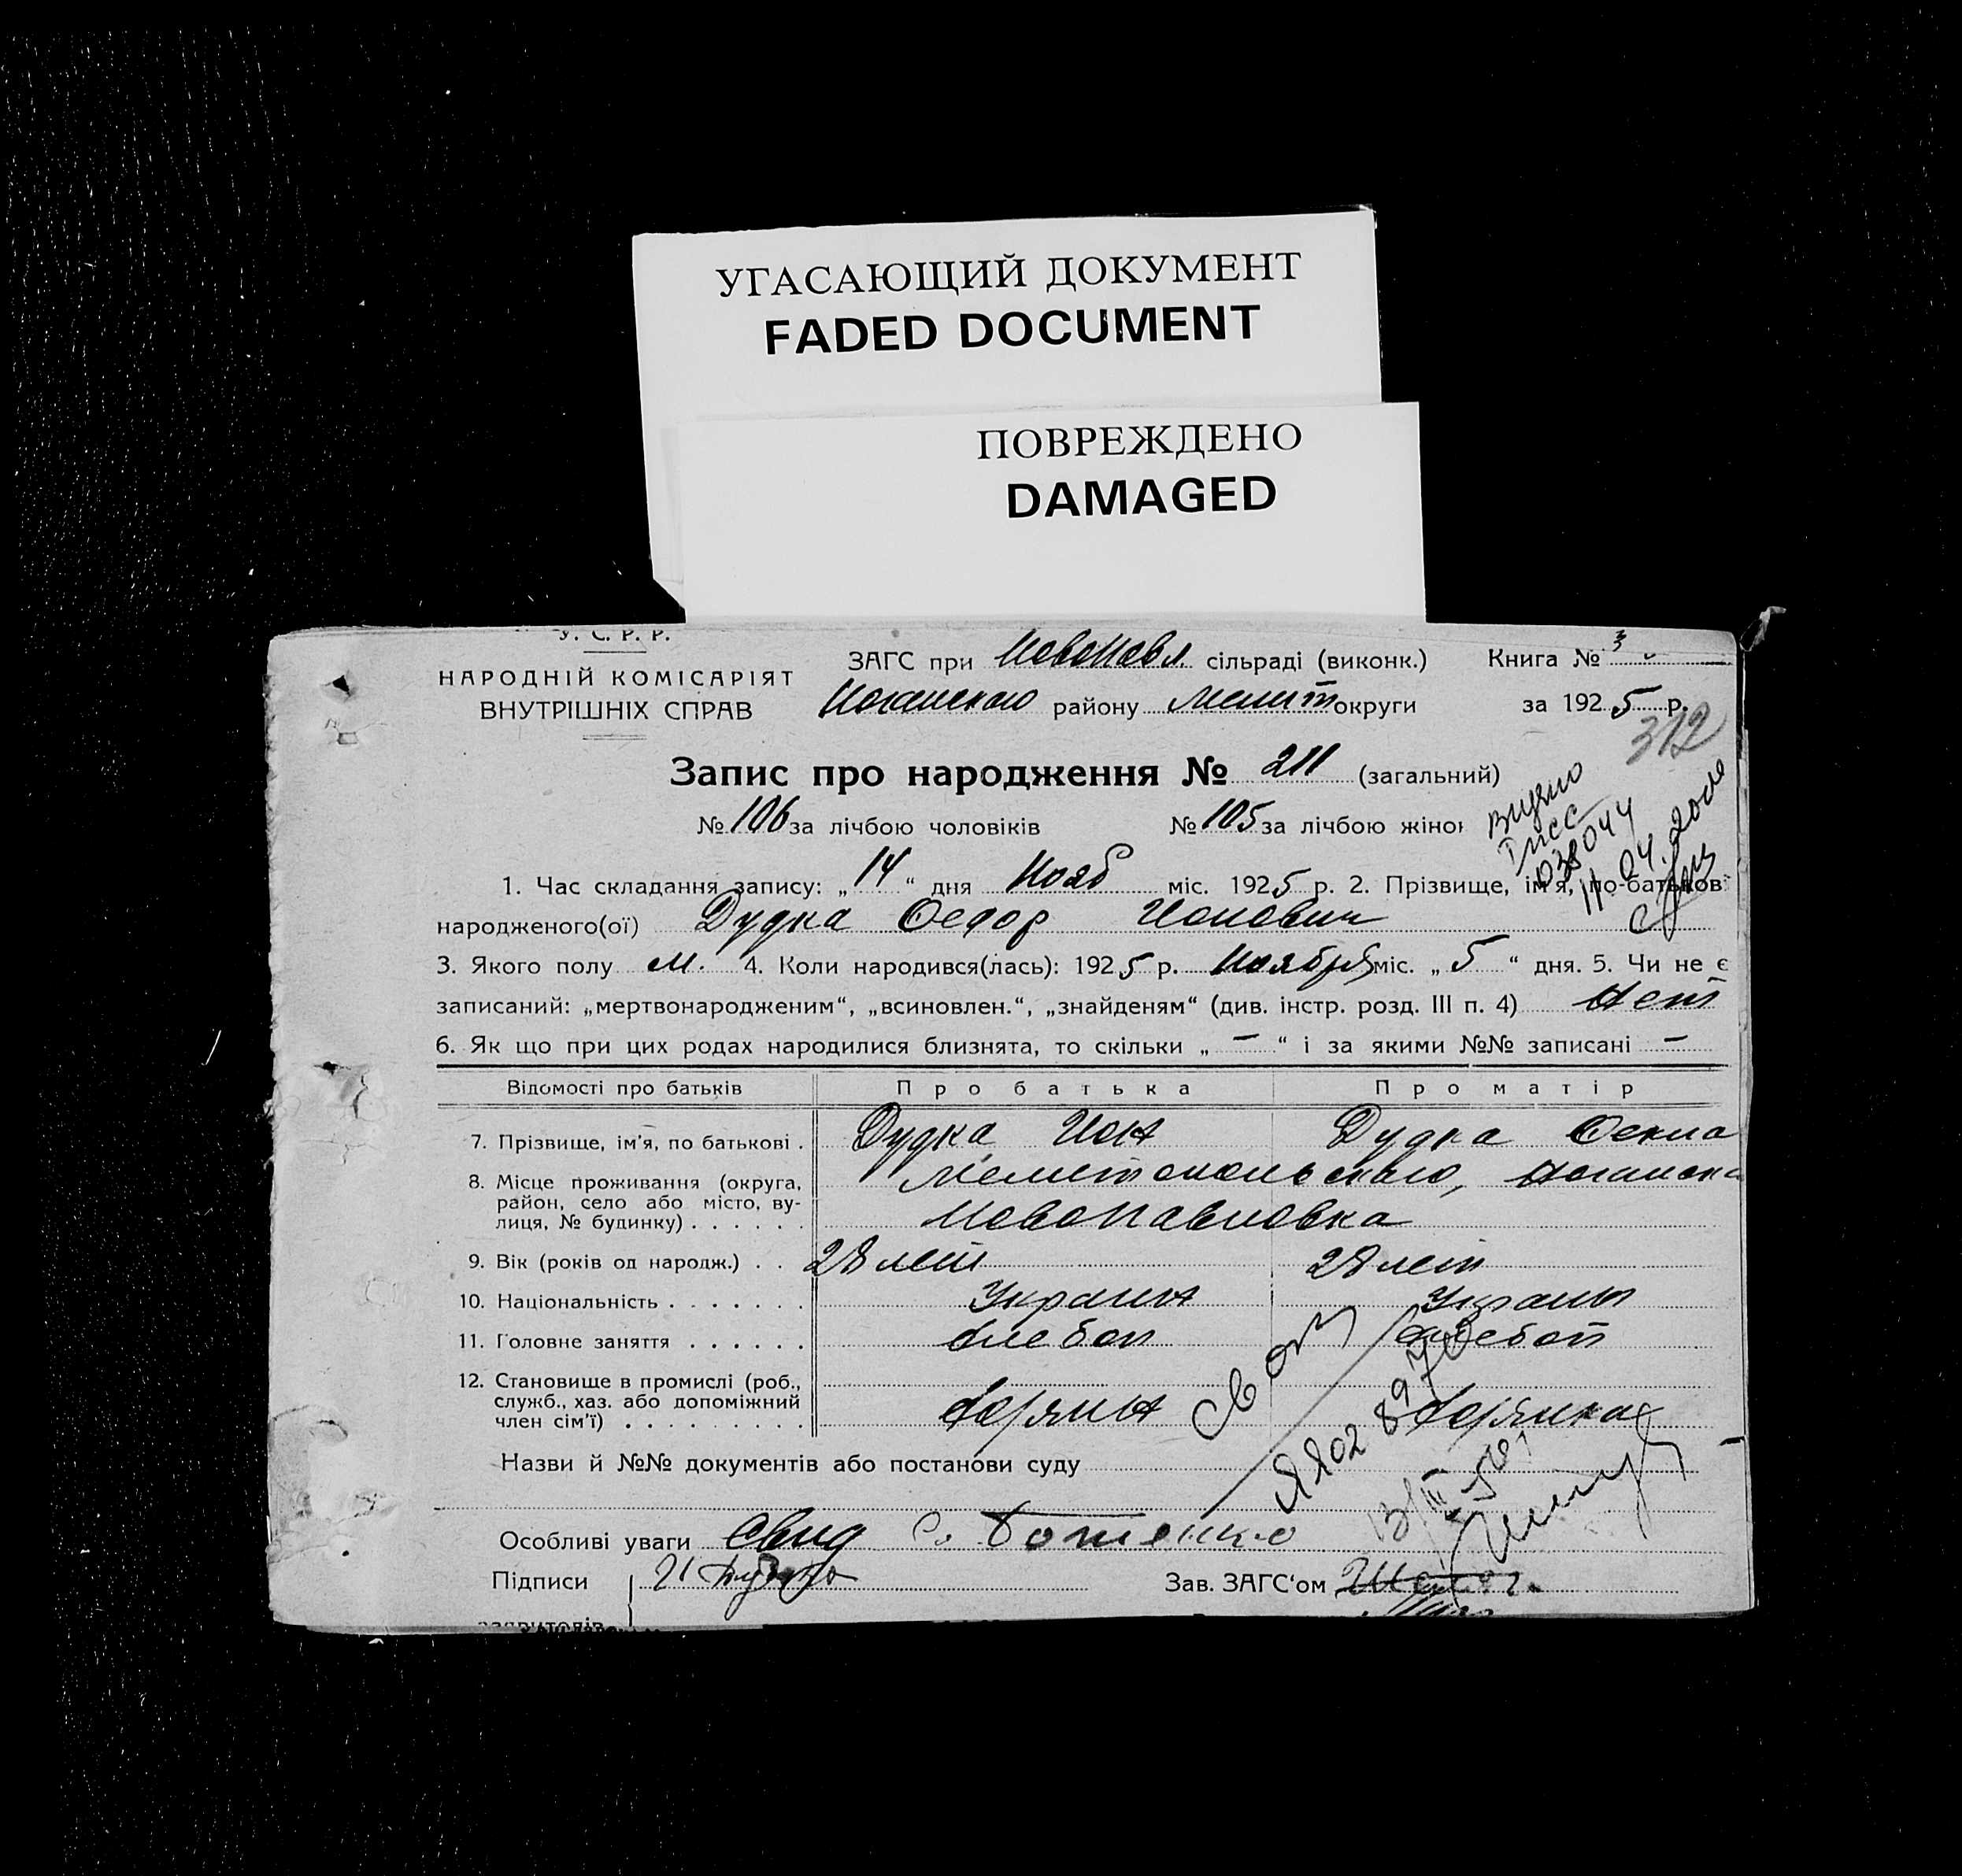 УГАСАЮЩИЙ ДОКУМЕНТ
FADED DOCUMENT
ПОВРЕЖДЕНО
DAMAGED
У. С. Р. Р.
НАРОДНІЙ КОМІСАРІЯТ
ВНУТРІШНІХ СПРАВ
ЗАГС при Новопавл. сільраді (виконк.) Книга № 3
району Мелит округи за 1925 р.
312
Запис про народження № 211 (загальний)
№ 106 за лічбою чоловіків № 105 за лічбою жінок
038044
11.04.
1. Час складання запису: „14“ дня Нояб міс. 1925 р. 2. Прізвище, ім'я, по-батькові
народженого(ої) Дудка Федор Ионович
3. Якого полу м. 4. Коли народився(лась): 1925 р. Ноября міс. „5“ дня. 5. Чи не є
записаний: „мертвонародженим“, „всиновлен.“, „знайденям“ (див. інстр. розд. III п. 4) Нет
6. Як що при цих родах народилися близнята, то скільки „ – “ і за якими №№ записані –
Відомості про батьків Про батька Про матір
7. Прізвище, ім'я, по батькові . Дудка Ион Дудка Фекла
8. Місце проживання (округа,
район, село або місто, ву-
лиця, № будинку) . . . . . .
Мелитопольского,
Новопавловка
9. Вік (років од народж.) . . 28 лет 28 лет
10. Національність . . . . . . . Украин Украин
11. Головне заняття . . . . . . хлебоп хлебоп
12. Становище в промислі (роб.,
служб., хаз. або допоміжний
член сім'ї) . . . . . . . . .
Назви й №№ документів або постанови суду
Особливі уваги
Підписи
Зав. ЗАГС'ом